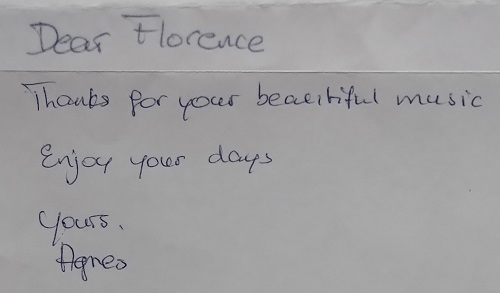 Dear Florence
Thanks for your beautiful music
Enjoy your days
Yours.
Agnes